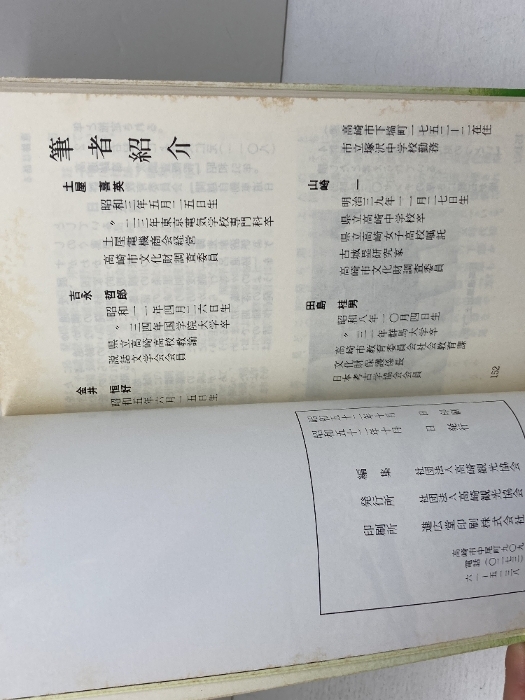 筆者紹介
土屋 喜英
昭和三年五月二五日生
〃 二三年東京電気学校専門科卒
土屋電機商会経営
高崎市文化財調査委員
吉永 哲郎
昭和一一年四月二六日生
〃 三四年国学院大学卒
県立高崎高校教諭
説話文学会会員
金井 恒好
昭和五年六月一五日生
高崎市下塙町一七五三ー一二在住
市立塚沢中学校勤務
山崎 一
明治三九年一二月二七日生
県立高崎中学校卒
県立高崎女子高校嘱託
古城塁研究家
高崎市文化財調査委員
田島 桂男
昭和八年一〇月四日生
〃 三一年群馬大学卒
高崎市教育委員会社会教育課
文化財保護係長
日本考古学協会会員
152
昭和五十二年十月 日 印刷
昭和五十二年十月 日 発行
編集 社団法人高崎観光協会
発行所 社団法人高崎観光協会
印刷所 進広堂印刷株式会社
高崎市中尾町九〇九